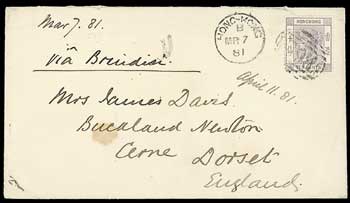 Mar 7. 81.
HONG-KONG
B
MR 7
81
HONG KONG
via Brindisi
April 11. 81.
Mrs James David
Buckland Newton
Cerne Dorset
England